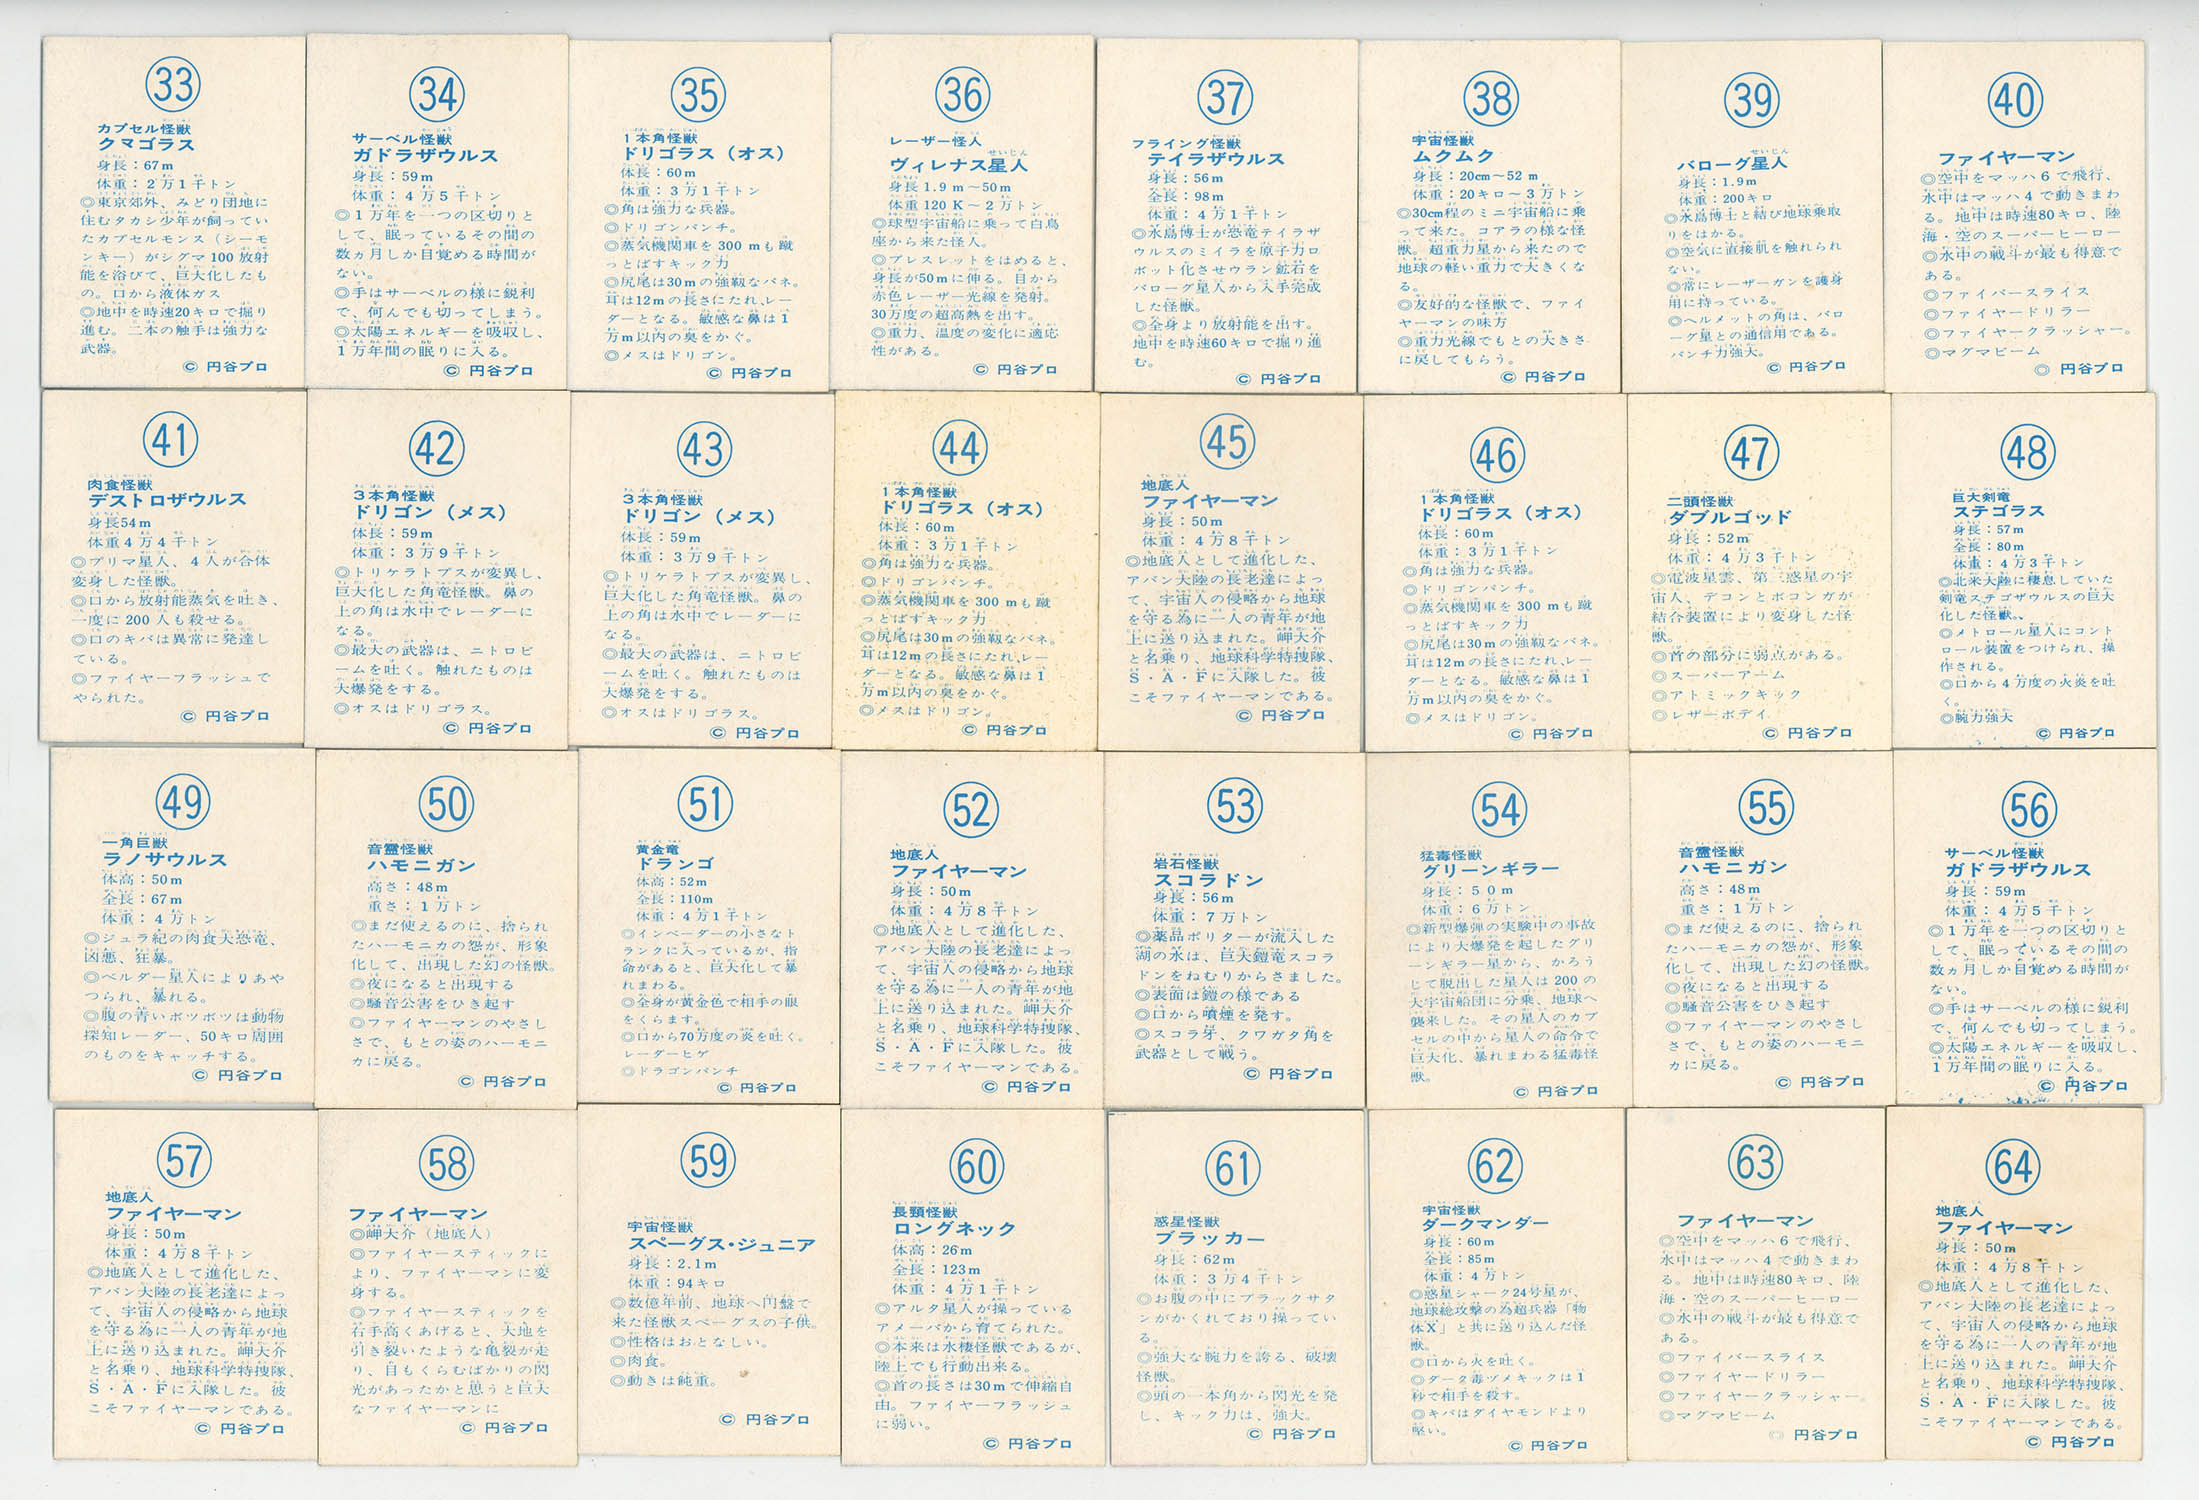 33
カプセル怪獣
クマゴラス
身長：67m
体重：2万1千トン
◎東京郊外、みどり団地に
住むタカシ少年が飼ってい
たカプセルモンス（シーモ
ンキー）がシグマ100放射
能を浴びて、巨大化したも
の。口から液体ガス
◎地中を時速20キロで掘り
進む。二本の触手は強力な
武器。
© 円谷プロ
34
サーベル怪獣
ガドラザウルス
身長：59m
体重：4万5千トン
◎1万年を一つの区切りと
して、眠っているその間の
数ヵ月しか目覚める時間が
ない。
◎手はサーベルの様に鋭利
で、何んでも切ってしまう。
◎太陽エネルギーを吸収し、
1万年間の眠りに入る。
© 円谷プロ
35
1本角怪獣
ドリゴラス（オス）
体長：60m
体重：3万1千トン
◎角は強力な兵器。
◎ドリゴンパンチ。
◎蒸気機関車を300mも蹴
っとばすキック力
◎尻尾は30mの強靱なバネ。
耳は12mの長さにたれ、レー
ダーとなる。敏感な鼻は1
万m以内の臭をかぐ。
◎メスはドリゴン。
© 円谷プロ
36
レーザー怪人
ヴィレナス星人
身長1.9m～50m
体重120K～2万トン
◎球型宇宙船に乗って白鳥
座から来た怪人。
◎ブレスレットをはめると、
身長が50mに伸る。目から
赤色レーザー光線を発射。
30万度の超高熱を出す。
◎重力、温度の変化に適応
性がある。
© 円谷プロ
37
フライング怪獣
テイラザウルス
身長：56m
全長：98m
体重：4万1千トン
◎水島博士が恐竜テイラザ
ウルスのミイラを原子力ロ
ボット化させウラン鉱石を
バローグ星人から入手完成
した怪獣。
◎全身より放射能を出す。
地中を時速60キロで掘り進
む。
© 円谷プロ
38
宇宙怪獣
ムクムク
身長：20cm～52m
体重：20キロ～3万トン
◎30cm程のミニ宇宙船に乗
って来た。コアラの様な怪
獣。超重力星から来たので
地球の軽い重力で大きくな
る。
◎友好的な怪獣で、ファイ
ヤーマンの味方
◎重力光線でもとの大きさ
に戻してもらう。
© 円谷プロ
39
バローグ星人
身長：1.9m
体重：200キロ
◎水島博士と結び地球乗取
りをはかる。
◎空気に直接肌を触れられ
ない。
◎常にレーザーガンを護身
用に持っている。
◎ヘルメットの角は、バロ
ーグ星との通信用である。
パンチ力強大。
© 円谷プロ
40
ファイヤーマン
◎空中をマッハ6で飛行、
水中はマッハ4で動きまわ
る。地中は時速80キロ、陸
海・空のスーパーヒーロー
◎水中の戦斗が最も得意で
ある。
◎ファイバースライス
◎ファイヤードリラー
◎ファイヤークラッシャー。
◎マグマビーム
© 円谷プロ
41
肉食怪獣
デストロザウルス
身長54m
体重4万4千トン
◎プリマ星人、4人が合体
変身した怪獣。
◎口から放射能蒸気を吐き、
一度に200人も殺せる。
◎口のキバは異常に発達し
ている。
◎ファイヤーフラッシュで
やられた。
© 円谷プロ
42
3本角怪獣
ドリゴン（メス）
体長：59m
体重：3万9千トン
◎トリケラトプスが変異し、
巨大化した角竜怪獣。鼻の
上の角は水中でレーダーに
なる。
◎最大の武器は、ニトロビ
ームを吐く。触れたものは
大爆発をする。
◎オスはドリゴラス。
© 円谷プロ
43
3本角怪獣
ドリゴン（メス）
体長：59m
体重：3万9千トン
◎トリケラトプスが変異し、
巨大化した角竜怪獣。鼻の
上の角は水中でレーダーに
なる。
◎最大の武器は、ニトロビ
ームを吐く。触れたものは
大爆発をする。
◎オスはドリゴラス。
© 円谷プロ
44
1本角怪獣
ドリゴラス（オス）
体長：60m
体重：3万1千トン
◎角は強力な兵器。
◎ドリゴンパンチ。
◎蒸気機関車を300mも蹴
っとばすキック力
◎尻尾は30mの強靱なバネ。
耳は12mの長さにたれ、レー
ダーとなる。敏感な鼻は1
万m以内の臭をかぐ。
◎メスはドリゴン。
© 円谷プロ
45
地底人
ファイヤーマン
身長：50m
体重：4万8千トン
◎地底人として進化した、
アバン大陸の長老達によっ
て、宇宙人の侵略から地球
を守る為に一人の青年が地
上に送り込まれた。岬大介
と名乗り、地球科学特捜隊、
S・A・Fに入隊した。彼
こそファイヤーマンである。
© 円谷プロ
46
1本角怪獣
ドリゴラス（オス）
体長：60m
体重：3万1千トン
◎角は強力な兵器。
◎ドリゴンパンチ。
◎蒸気機関車を300mも蹴
っとばすキック力
◎尻尾は30mの強靱なバネ。
耳は12mの長さにたれ、レー
ダーとなる。敏感な鼻は1
万m以内の臭をかぐ。
◎メスはドリゴン。
© 円谷プロ
47
二頭怪獣
ダブルゴッド
身長：52m
体重：4万3千トン
◎電波星雲、第三惑星の宇
宙人、デコンとボコンガが
結合装置により変身した怪
獣。
◎首の部分に弱点がある。
◎スーパーアーム
◎アトミックキック
◎レザーボデイ
© 円谷プロ
48
巨大剣竜
ステゴラス
身長：57m
全長：80m
体重：4万3千トン
◎北米大陸に棲息していた
剣竜ステゴザウルスの巨大
化した怪獣。
◎メトロール星人にコント
ロール装置をつけられ、操
作される。
◎口から4万度の火炎を吐
く。
◎腕力強大
© 円谷プロ
49
一角巨獣
ラノサウルス
体高：50m
全長：67m
体重：4万トン
◎ジュラ紀の肉食大恐竜、
凶悪、狂暴。
◎ベルダー星人によりあや
つられ、暴れる。
◎腹の青いボツボツは動物
探知レーダー、50キロ周囲
のものをキャッチする。
© 円谷プロ
50
音霊怪獣
ハモニガン
高さ：48m
重さ：1万トン
◎まだ使えるのに、捨られ
たハーモニカの怨が、形象
化して、出現した幻の怪獣。
◎夜になると出現する
◎騒音公害をひき起す
◎ファイヤーマンのやさし
さで、もとの姿のハーモニ
カに戻る。
© 円谷プロ
51
黄金竜
ドランゴ
体高：52m
全長：110m
体重：4万1千トン
◎インベーダーの小さなト
ランクに入っているが、指
命があると、巨大化して暴
れまわる。
◎全身が黄金色で相手の眼
をくらます。
◎口から70万度の炎を吐く。
レーダーヒゲ
◎ドラゴンパンチ
© 円谷プロ
52
地底人
ファイヤーマン
身長：50m
体重：4万8千トン
◎地底人として進化した、
アバン大陸の長老達によっ
て、宇宙人の侵略から地球
を守る為に一人の青年が地
上に送り込まれた。岬大介
と名乗り、地球科学特捜隊、
S・A・Fに入隊した。彼
こそファイヤーマンである。
© 円谷プロ
53
岩石怪獣
スコラドン
身長：56m
体重：7万トン
◎薬品ポリターが流入した
湖の水は、巨大鎧竜スコラ
ドンをねむりからさました。
◎表面は鎧の様である
◎口から噴煙を発す。
◎スコラ牙、クワガタ角を
武器として戦う。
© 円谷プロ
54
猛毒怪獣
グリーンギラー
身長：50m
体重：6万トン
◎新型爆弾の実験中の事故
により大爆発を起したグリ
ーンギラー星から、かろう
じて脱出した星人は200の
大宇宙船団に分乗、地球へ
襲来した。その星人のカプ
セルの中から星人の命令で
巨大化、暴れまわる猛毒怪
獣。
© 円谷プロ
55
音霊怪獣
ハモニガン
高さ：48m
重さ：1万トン
◎まだ使えるのに、捨られ
たハーモニカの怨が、形象
化して、出現した幻の怪獣。
◎夜になると出現する
◎騒音公害をひき起す
◎ファイヤーマンのやさし
さで、もとの姿のハーモニ
カに戻る。
© 円谷プロ
56
サーベル怪獣
ガドラザウルス
身長：59m
体重：4万5千トン
◎1万年を一つの区切りと
して、眠っているその間の
数ヵ月しか目覚める時間が
ない。
◎手はサーベルの様に鋭利
で、何んでも切ってしまう。
◎太陽エネルギーを吸収し、
1万年間の眠りに入る。
© 円谷プロ
57
地底人
ファイヤーマン
身長：50m
体重：4万8千トン
◎地底人として進化した、
アバン大陸の長老達によっ
て、宇宙人の侵略から地球
を守る為に一人の青年が地
上に送り込まれた。岬大介
と名乗り、地球科学特捜隊、
S・A・Fに入隊した。彼
こそファイヤーマンである。
© 円谷プロ
58
ファイヤーマン
◎岬大介（地底人）
◎ファイヤースティックに
より、ファイヤーマンに変
身する。
◎ファイヤースティックを
右手高くあげると、大地を
引き裂いたような亀裂が走
り、目もくらむばかりの閃
光があったかと思うと巨大
なファイヤーマンに
© 円谷プロ
59
宇宙怪獣
スペーグス・ジュニア
身長：2.1m
体重：94キロ
◎数億年前、地球へ円盤で
来た怪獣スペーグスの子供。
◎性格はおとなしい。
◎肉食。
◎動きは鈍重。
© 円谷プロ
60
長頸怪獣
ロングネック
体高：26m
全長：123m
体重：4万1千トン
◎アルタ星人が操っている
アメーバから育てられた。
◎本来は水棲怪獣であるが、
陸上でも行動出来る。
◎首の長さは30mで伸縮自
由。ファイヤーフラッシュ
に弱い。
© 円谷プロ
61
惑星怪獣
ブラッカー
身長：62m
体重：3万4千トン
◎お腹の中にブラックサタ
ンがかくれており操ってい
る。
◎強大な腕力を誇る、破壊
怪獣。
◎頭の一本角から閃光を発
し、キック力は、強大。
© 円谷プロ
62
宇宙怪獣
ダークマンダー
身長：60m
全長：85m
体重：4万トン
◎惑星シャーク24号星が、
地球総攻撃の為超兵器「物
体X」と共に送り込んだ怪
獣。
◎口から火を吐く。
◎ダーク毒ヅメキックは1
秒で相手を殺す。
◎キバはダイヤモンドより
堅い。
© 円谷プロ
63
ファイヤーマン
◎空中をマッハ6で飛行、
水中はマッハ4で動きまわ
る。地中は時速80キロ、陸
海・空のスーパーヒーロー
◎水中の戦斗が最も得意で
ある。
◎ファイバースライス
◎ファイヤードリラー
◎ファイヤークラッシャー。
◎マグマビーム
© 円谷プロ
64
地底人
ファイヤーマン
身長：50m
体重：4万8千トン
◎地底人として進化した、
アバン大陸の長老達によっ
て、宇宙人の侵略から地球
を守る為に一人の青年が地
上に送り込まれた。岬大介
と名乗り、地球科学特捜隊、
S・A・Fに入隊した。彼
こそファイヤーマンである。
© 円谷プロ